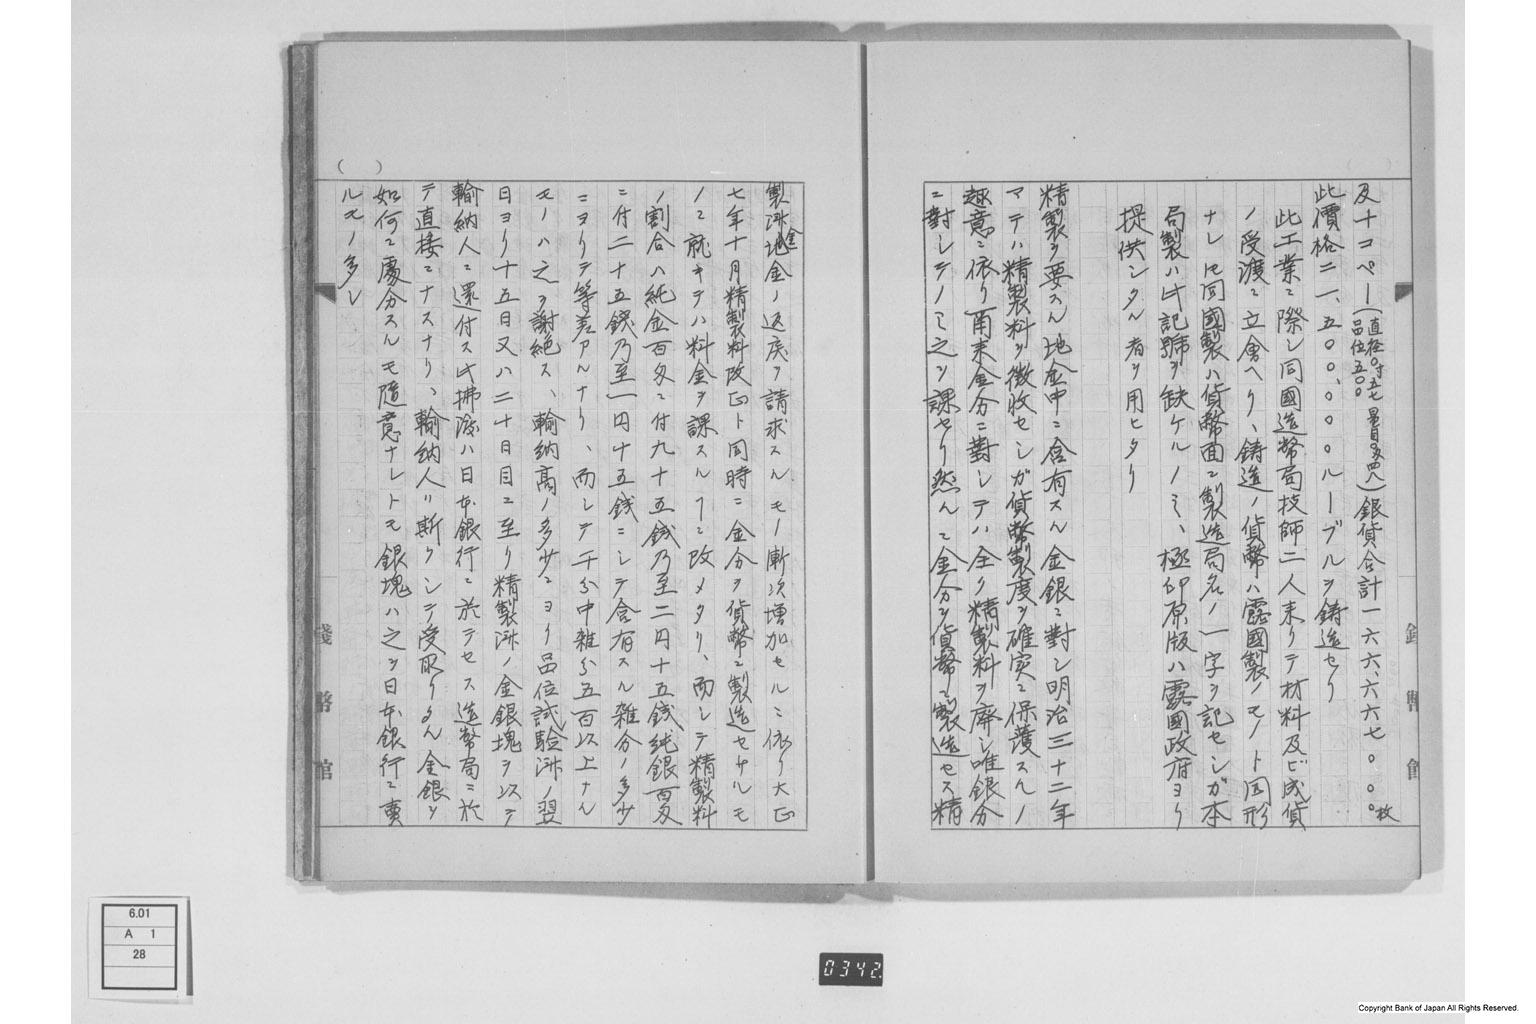 及十コペー(直径〇寸五七 量目〇匁四八 品位五〇〇)銀貨合計一六六、六六七〇〇〇。枚
此價格二一、五〇〇、〇〇〇ルーブルヲ鋳造セリ
此工業ニ際シ同國造幣局技師二人来リテ材料及ビ成貨
ノ受渡ニ立會ヘリ、鋳造ノ貨幣ハ露國製ノモノト同形
ナレ𪜈同國製ハ貨幣面ニ製造局名ノ一字ヲ記セシガ本
局製ハ此記號ヲ缺ケルノミ、極印原版ハ露國政府ヨリ
提供シタル者ヲ用ヒタリ
精製ヲ要スル地金中ニ含有スル金銀ニ對シ明治三十二年
マテハ精製料ヲ徴收セシガ貨幣製度ヲ確実ニ保護スルノ
趣意ニ依リ爾来金分ニ對シテハ全ク精製料ヲ廃シ唯銀分
ニ對シテノミ之ヲ課セリ然ルニ金分ヲ貨幣ニ製造セス精
製済地金ノ返戻ヲ請求スルモノ漸次増加セルニ依リ大正
金
七年十月精製料改正ト同時ニ金分ヲ貨幣ニ製造セサルモ
ノニ就キテハ料金ヲ課スルヿニ改メタリ、而シテ精製料
ノ割合ハ純金百匁ニ付九十五銭乃至二円十五銭純銀百匁
ニ付二十五銭乃至一円十五銭ニシテ含有スル雑分ノ多少
ニヨリテ等差アルナリ、而シテ千分中雑分五百以上ナル
モノハ之ヲ謝絶ス、輸納高ノ多少ニヨリ品位試験済ノ翌
日ヨリ十五日又ハ二十日目ニ至リ精製済ノ金銀塊ヲ以テ
輸納人ニ還付ス此拂渡ハ日本銀行ニ於テセス造幣局ニ於
テ直接ニナスナリ、輸納人ハ斯クシテ受取リタル金銀ヲ
如何ニ處分スルモ随意ナレトモ銀塊ハ之ヲ日本銀行ニ賣
ルモノ多シ
( )
錢幣館
6.01
A 1
28
0342.
Copyright Bank of Japan All Rights Reserved.